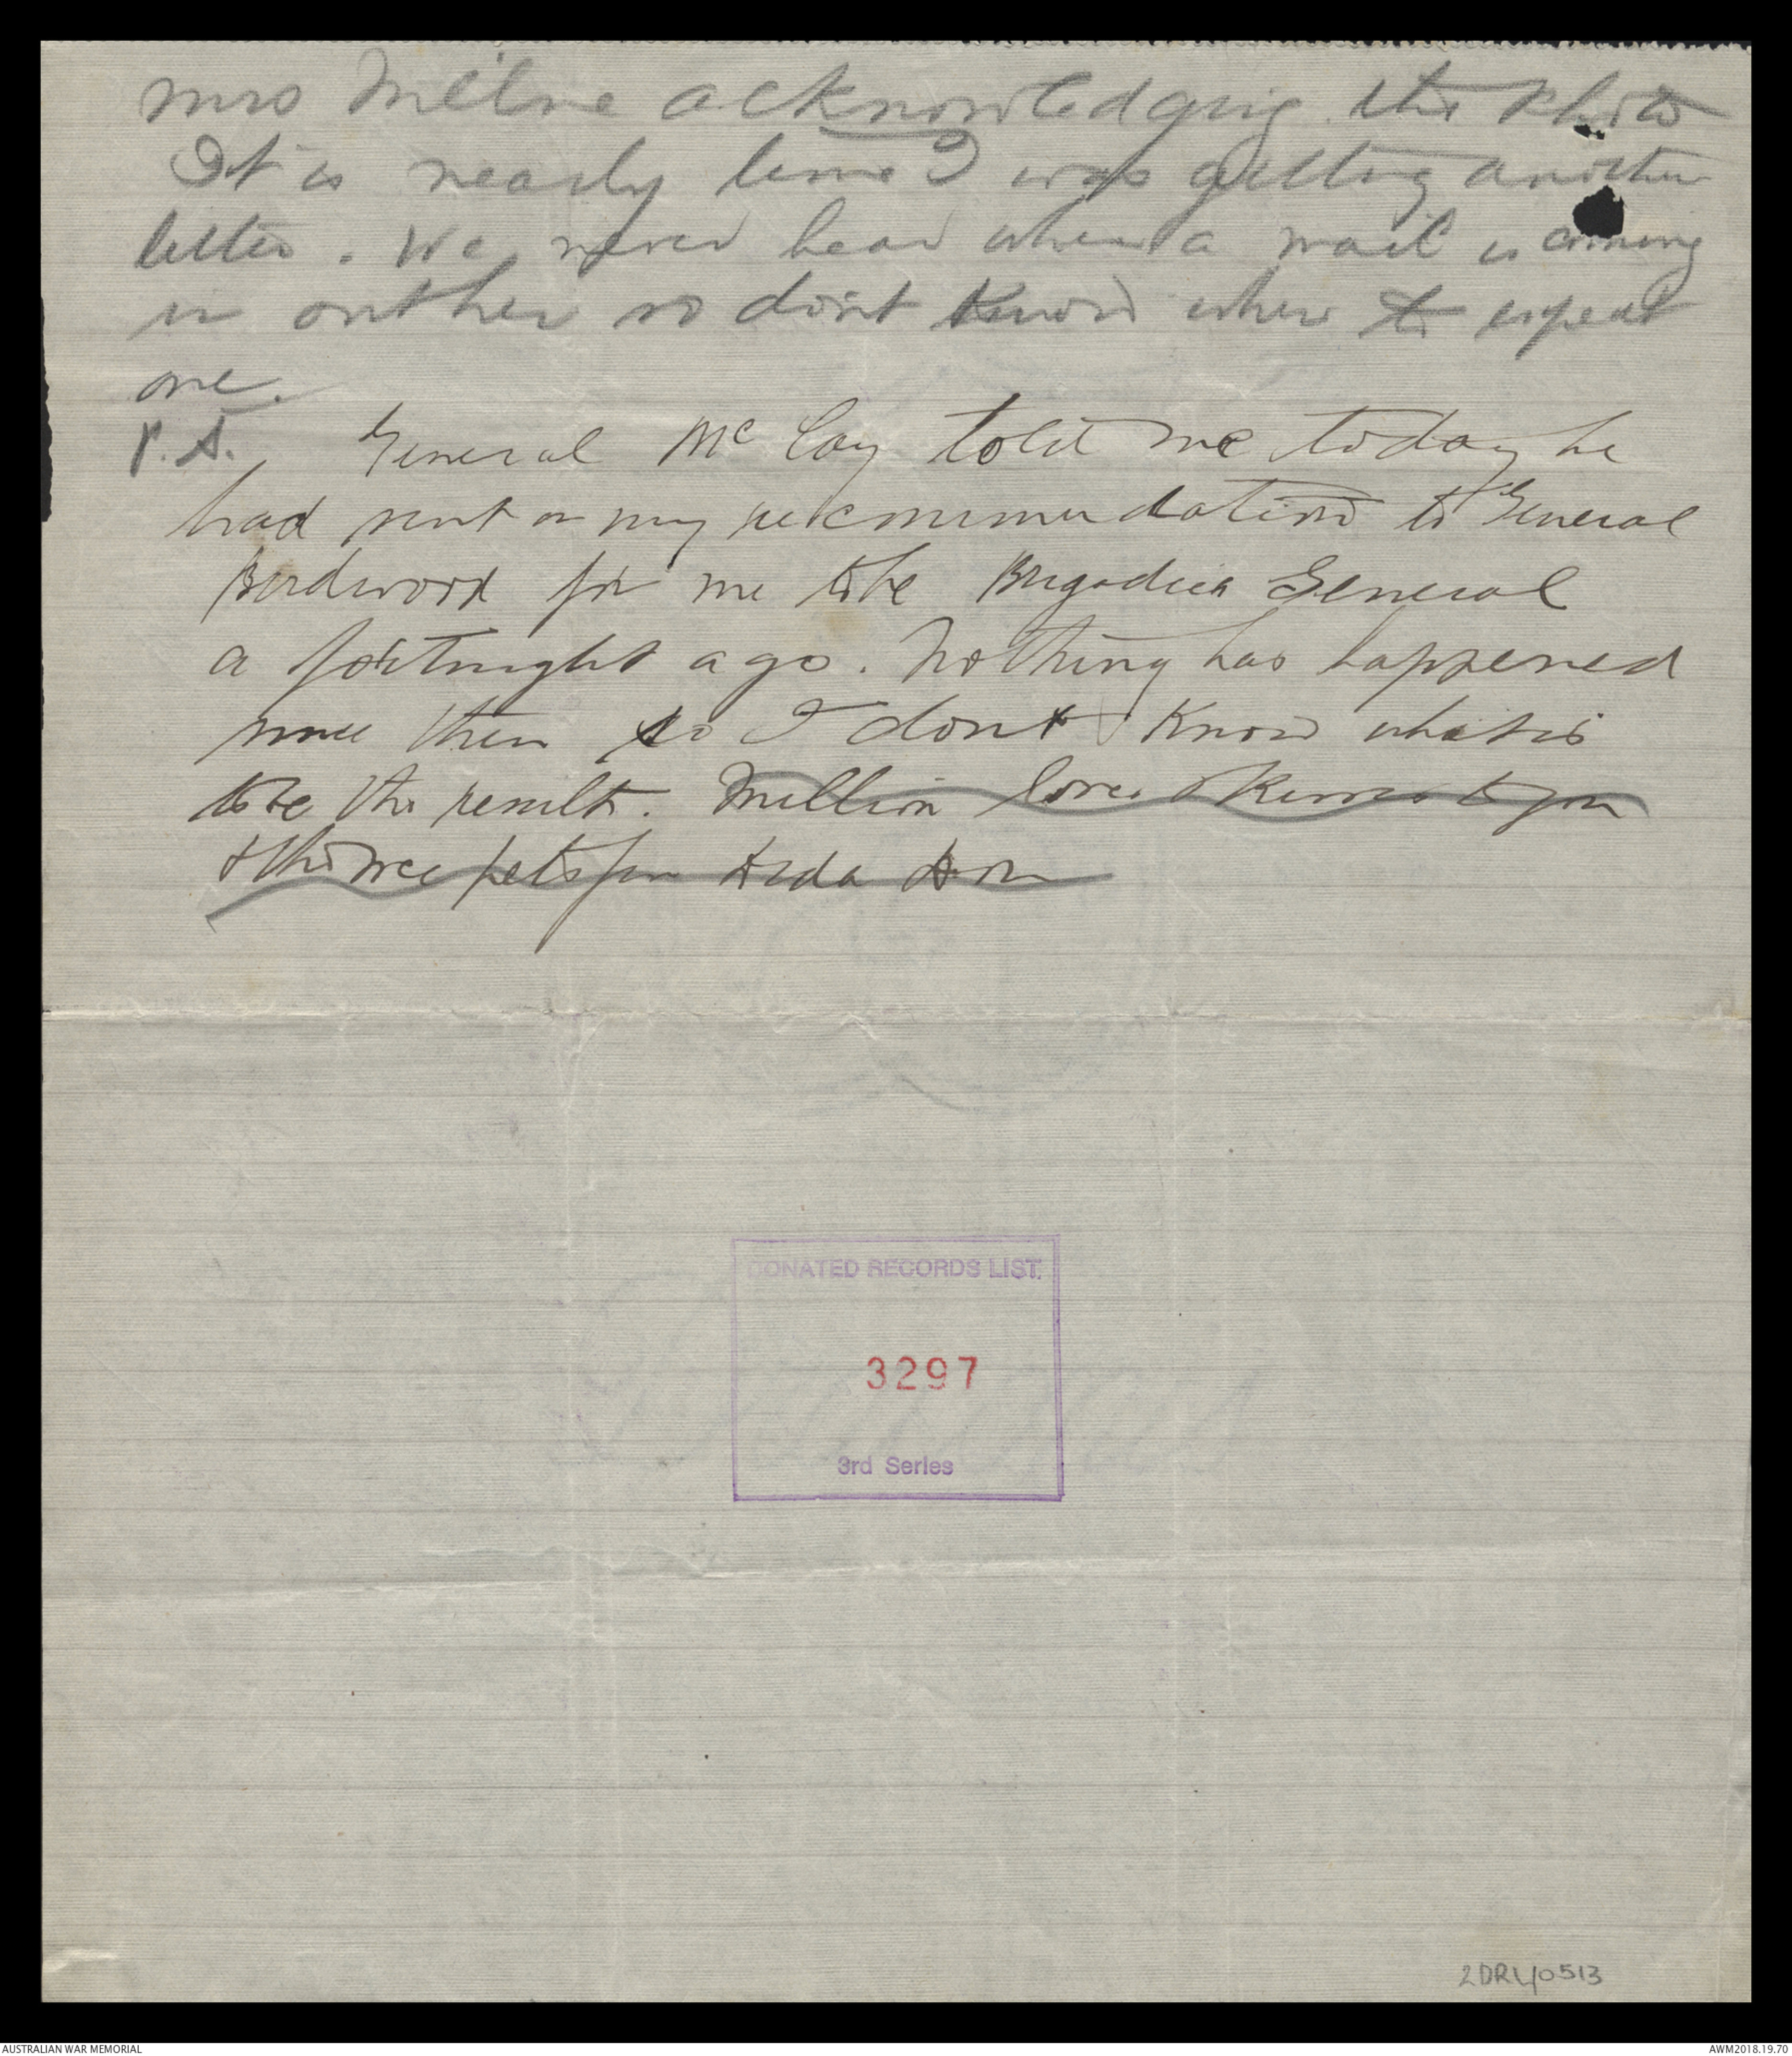 Mrs Milne acknowledging the photo
It is nearly time I was getting another
letter. We never hear when a mail is coming
in out here so dont know when to expect
one.
P.S. General McCay told me today he
had sent on my recommendation to General
Birdwood for me to be Brigadier General
a fortnight ago. Nothing has happened
since then so I dont know what is
to be the result. Million loves & kisses to you
& the wee pets from
DONATED RECORDS LIST
3297
3rd Series
2DRL/0513
AUSTRALIAN WAR MEMORIAL
AWM2018.19.70